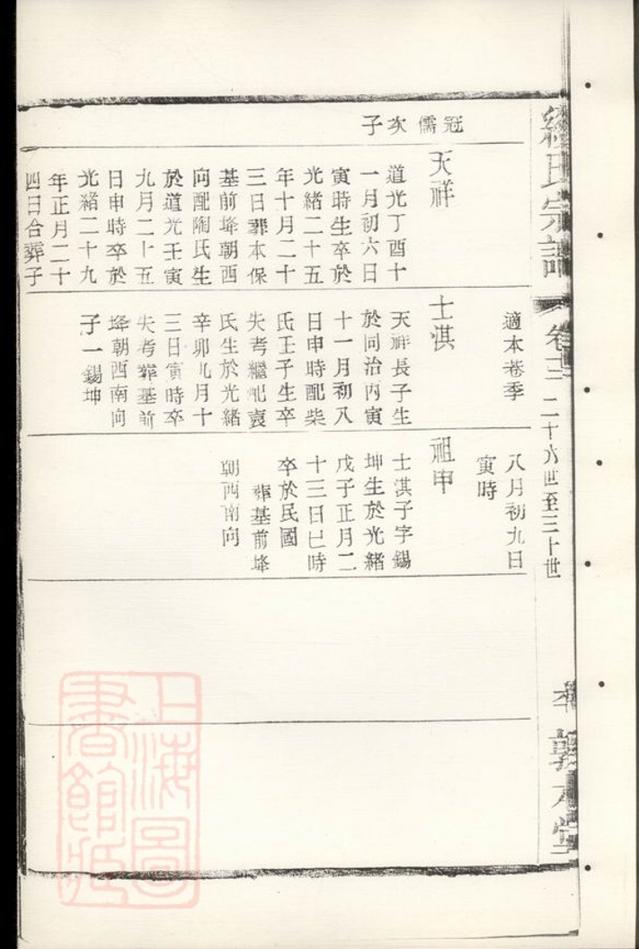 氏宗譜
卷十二
二十六世至三十世
冠儒次子
天祥
道光丁酉十
一月初六日
寅時生卒於
光緒二十五
年十月二十
三日葬本保
基前埄朝西
向配陶氏生
於道光壬寅
九月二十五
日申時卒於
光緒二十九
年正月二十
四日合葬子
適本巷季
士淇
天祥長子生
於同治丙寅
十一月初八
日申時配柴
氏壬子生卒
失考繼配袁
氏生於光緒
辛卯九月十
三日寅時卒
失考葬基前
埄朝西南向
子一錫坤
八月初九日
寅時
祖申
士淇子字錫
坤生於光緒
戊子正月二
十三日巳時
卒於民國
葬基前埄
朝西南向
上海圖
書館藏